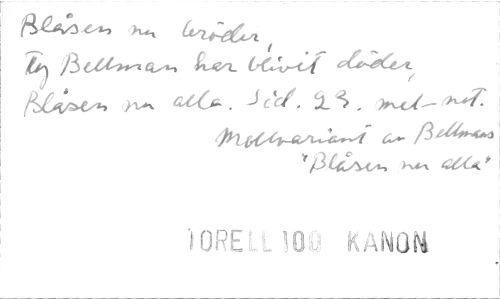 Blåsen nu bröder,
Ty Bellman har blivit döder,
Blåsen nu alla. Sid. 23. mel-not.
Mollvariant av Bellmans
"Blåsen nu alla"
TORELL 100 KANON